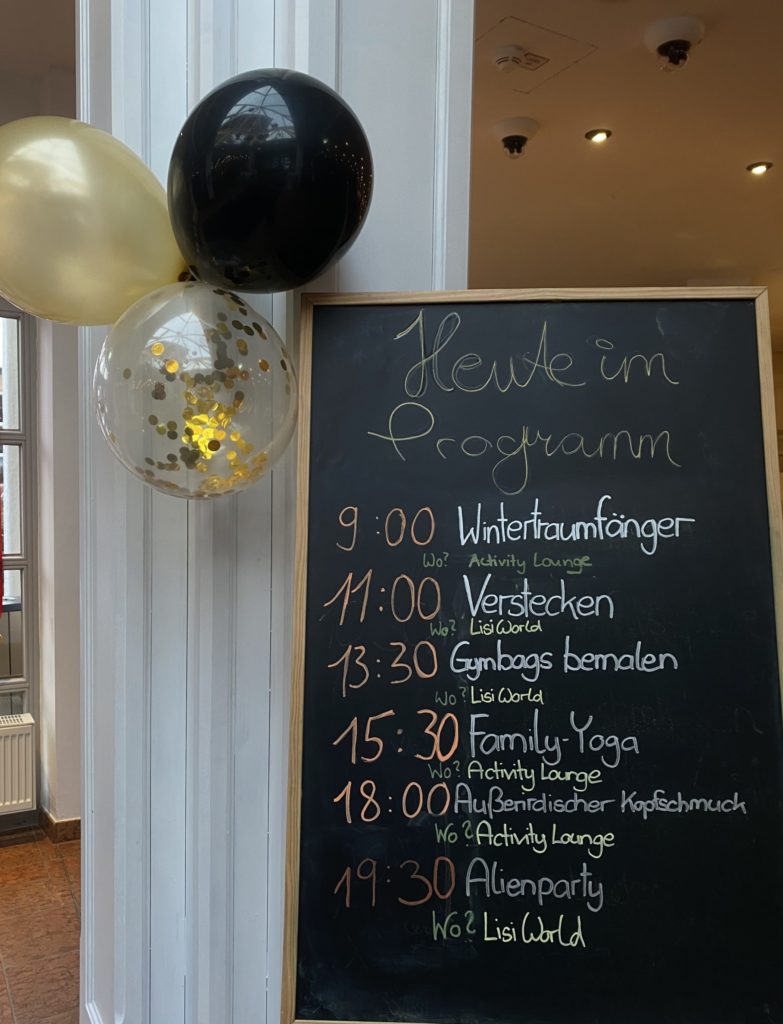 Heute im
Programm
9:00 Wintertraumfänger
Wo? Activity Lounge
11:00 Verstecken
Wo? Lisi World
13:30 Gymbags bemalen
Wo? Lisi World
15:30 Family-Yoga
Wo? Activity Lounge
18:00 Außenrdischer Kopfschmuck
Wo? Activity Lounge
19:30 Alienparty
Wo? Lisi World